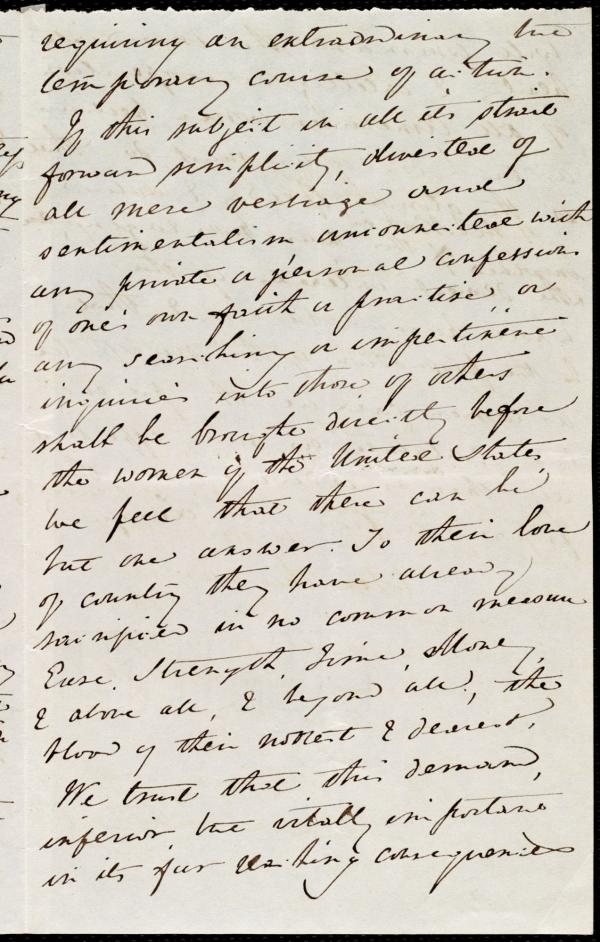 requiring an extraordinary but
temporary course of action.
If this subject in all its strait
forward simplicity, divested of
all mere vestiage and
sentimentalism unconnected with
any private or personal confessions
of one's own faith or practise, or
any searching or impertinent
inquiries into those of others
shall be brought directly before
the women of the United States,
we feel that there can be
but one answer. To their love
of country they have already
sacrificed in no common measure
Ease, Strength, Time, Money,
& above all, & beyond all, the
blood of their noblest & dearest.
We trust that this demand,
inferior but vitally important
in its far reaching consequences